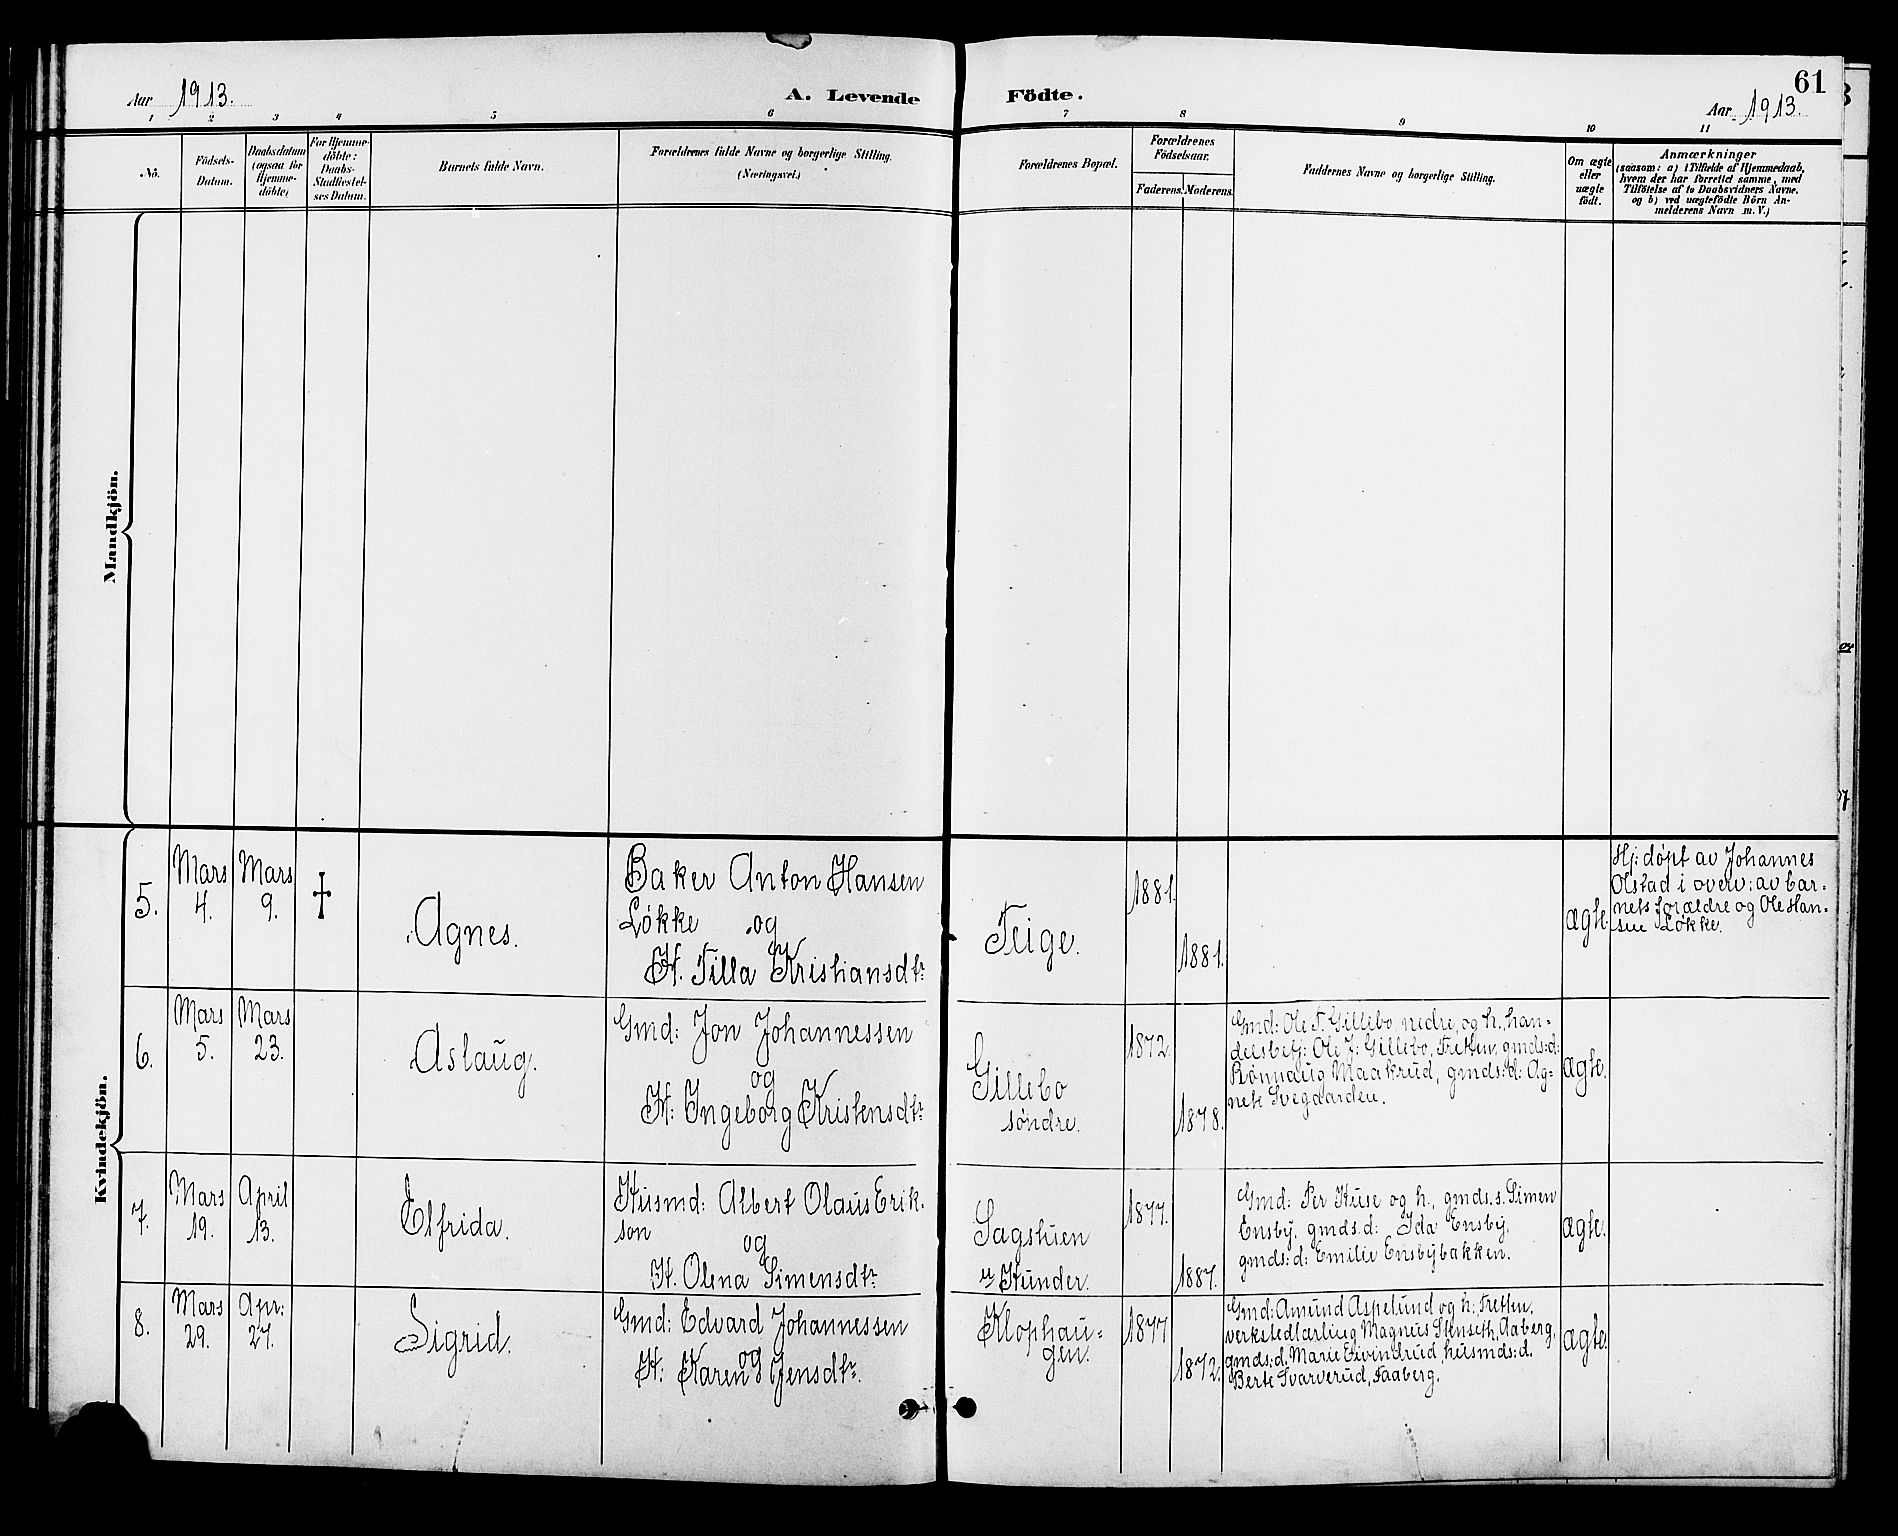 Aar 1913.
A. Levende Födte.
61
Aar 1913.
1 2 3 4 5 6 7 8 9 10 11
No.
Födsels-
Datum.
Daabsdatum
(ogsaa for
Hjemme-
döbte)
For Hjemme-
döbte:
Daabs-
Stadfæstel-
ses Datum.
Barnets fulde Navn.
Forældrenes fulde Navne og borgerlige Stilling.
(Næringsvei.)
Forældrenes Bopæl.
Forældrenes
Födselsaar.
Faderens. Moderens.
Faddernes Navne og borgerlige Stilling.
Om ægte
eller
uægte
födt.
Anmærkninger
(saasom: a) i Tilfælde af Hjemmedaab,
hvem der har forrettet samme, med
Tilföielse af to Daabsvidners Navne,
og b) ved uægtefödte Börn An-
melderens Navn m. V.)
Mandkjön.
Kvindekjön.
5.
Mars
4.
Mars
9.
†
Agnes.
Baker Anton Hansen
Løkke og
H. Tilla Kristiansdtr
Teige.
1881.
1881.
ægte
Hj: døpt av Johannes
Olstad i overv: av bar-
nets forældre og Ole Han-
sen Løkke.
6.
Mars
5.
Mars
23.
Aslaug.
Gmd: Jon Johannessen
og
H: Ingeborg Kristensdtr
Gillebo
søndre.
1872.
1878.
Gmd: Ole T. Gillebo nedre, og h, han-
delsbetj: Ole J: Gillebo, Tretten, gmds:d:
Rønnaug Maakrud, gmds:d: Ag-
nete Svegaarden.
ægte.
7.
Mars
19.
April
13.
Elfrida.
Husmd: Albert Olaus Erik-
son
og
H. Olena Simensdtr
Sagstuen
u/ Hunder.
1877.
1887.
Gmd: Per Huse og h., gmds.s. Simen
Ensby, gmds.d: Ida Ensby,
gmds:d: Emilie Ensbybakken.
ægte.
8.
Mars
29.
Apr:
27.
Sigrid.
Gmd: Edvard Johannessen
og
H: Karen Jensdtr.
Klophau-
gen.
1877
1872.
Gmd: Amund Aspelund og h: Tretten.
verkstedlærling Magnus Stenseth, Aaberg,
gmds:d. Marie Eivindrud, husmds:d.
Berte Svarverud, Faaberg.
ægte.